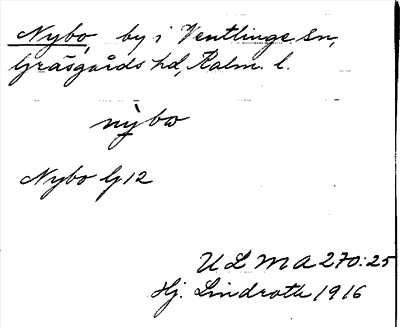 Nybo, by i Ventlinge sn,
Gräsgårds hd, Kalm. l.
nỳbω
Nybo G 12
ULMA 270:25
Hj. Lindroth 1916